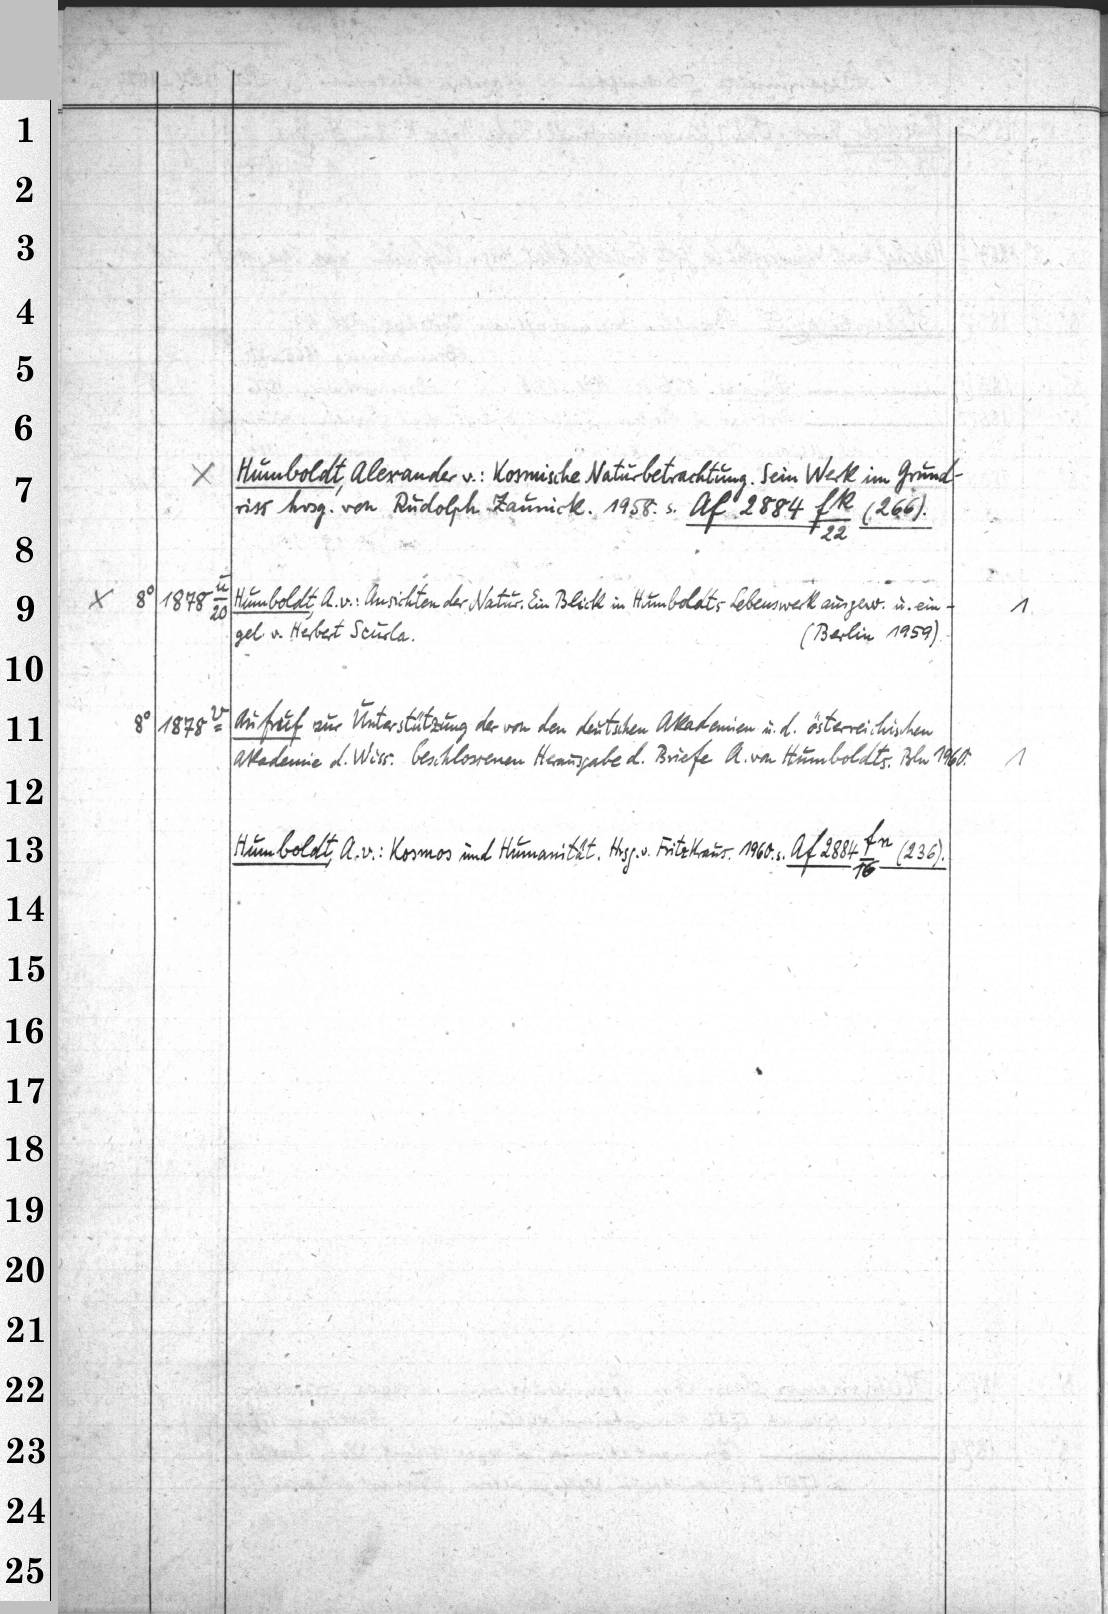 1
2
3
4
5
6
7
8
9
10
11
12
13
14
15
16
17
18
19
20
21
22
23
24
25
× Humboldt, Alexander v.: Kosmische Naturbetrachtung. Sein Werk im Grund-
riss hrsg. von Rudolph Zaunick. 1958. s. Af 2884 fk/22 (266).
× 8° 1878 u/20 Humboldt, A.v.: Ansichten der Natur. Ein Blick in Humboldts Lebenswerk ausgew. u. ein- 1
gel. v. Herbert Scurla. (Berlin 1959)
8° 1878 v Aufruf zur Unterstützung der von den deutschen Akademien u. d. österreichischen
Akademie d. Wiss. beschlossenen Herausgabe d. Briefe A. von Humboldts. Bln 1960. 1
Humboldt, A.v.: Kosmos und Humanität. Hrsg. v. Fritz Kraus. 1960. s. Af 2884 fn/16 (236).